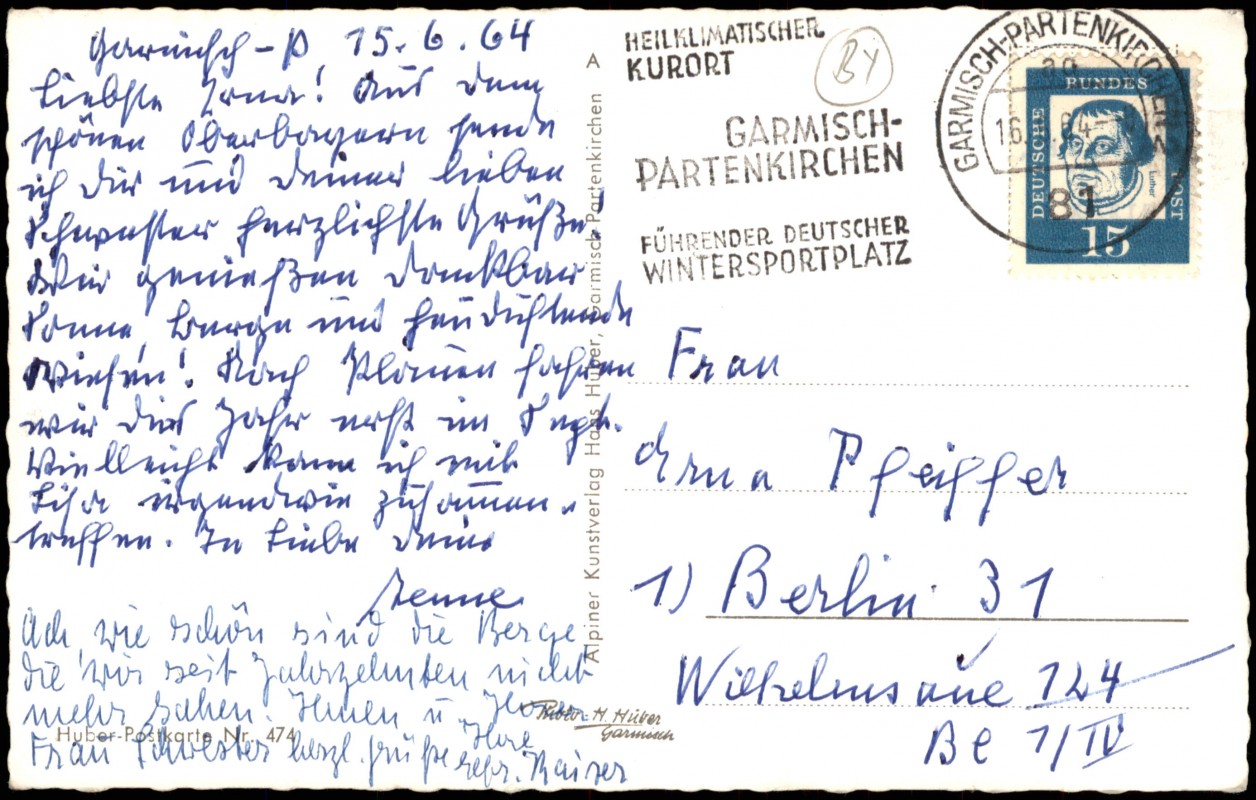 Garmisch-P, 15.6.64
Liebste Erna! Aus dem
schönen Oberbayern sende
ich Dir und Deiner lieben
Schwester herzlichste Grüße!
Wir genießen dankbar
Sonne, Berge und heuduftende
Wiesen! Nach Plauen fahren
wir dies Jahr erst im Sept.
Vielleicht kann ich mit
Lisa irgendwie zusammen-
treffen. In Liebe Deine
Ach, wie schön sind die Berge
die wir seit Jahrzehnten nicht
mehr sahen. Ihnen u. Ihrer
Frau Schwester herzl. Grüße Ihre
Huber-Postkarte Nr. 474
Alpiner Kunstverlag Hans Huber, Garmisch-Partenkirchen A
Photo: H. Huber
Garmisch
HEILKLIMATISCHER
KURORT
BY
GARMISCH-
PARTENKIRCHEN
FÜHRENDER DEUTSCHER
WINTERSPORTPLATZ
GARMISCH-PARTENKIRCHEN 2
81
DEUTSCHE
BUNDES
POST
Luther
15
Frau
Erna Pfeiffer
1) Berlin 31
Wilhelmsaue 124
Be 1/IV